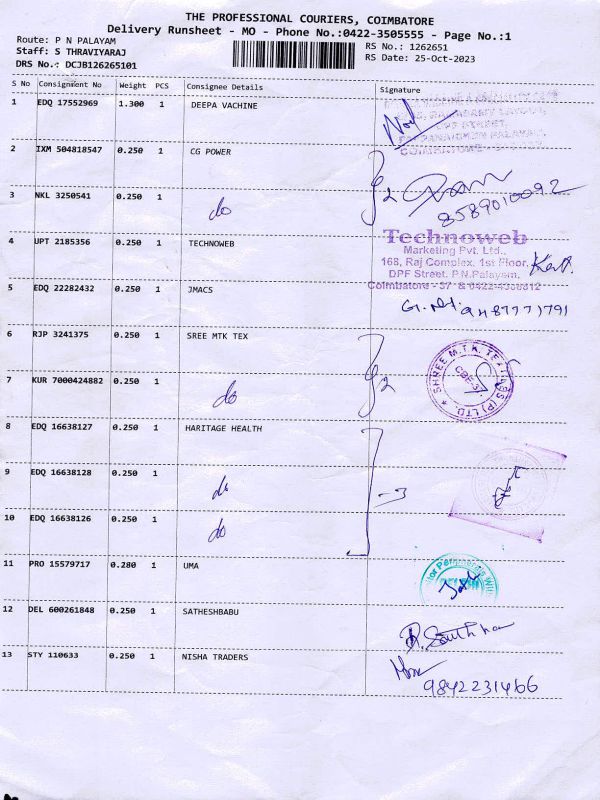 THE PROFESSIONAL COURIERS, COIMBATORE
Delivery Runsheet - MO - Phone No.:0422-3505555 - Page No.:1
Route: P N PALAYAM
Staff: S THRAVIYARAJ
DRS No.: DCJB126265101
RS No.: 1262651
RS Date: 25-Oct-2023
S No Consignment No Weight PCS Consignee Details Signature
1 EDQ 17552969 1.300 1 DEEPA VACHINE
2 IXM 504818547 0.250 1 CG POWER
2
8589010092
3 NKL 3250541 0.250 1 do
4 UPT 2185356 0.250 1 TECHNOWEB
Technoweb
Marketing Pvt. Ltd.,
168, Raj Complex, 1st Floor,
DPF Street, P.N.Palayam,
Coimbatore - 37
5 EDQ 22282432 0.250 1 JMACS
9487771791
6 RJP 3241375 0.250 1 SREE MTK TEX
2
SHREE M.T.K. TEXTILES (P) LTD.
7 KUR 7000424882 0.250 1 do
8 EDQ 16638127 0.250 1 HARITAGE HEALTH
9 EDQ 16638128 0.250 1 do
-3
10 EDQ 16638126 0.250 1 do
11 PRO 15579717 0.280 1 UMA
12 DEL 600261848 0.250 1 SATHESHBABU
13 STY 110633 0.250 1 NISHA TRADERS
9842231466